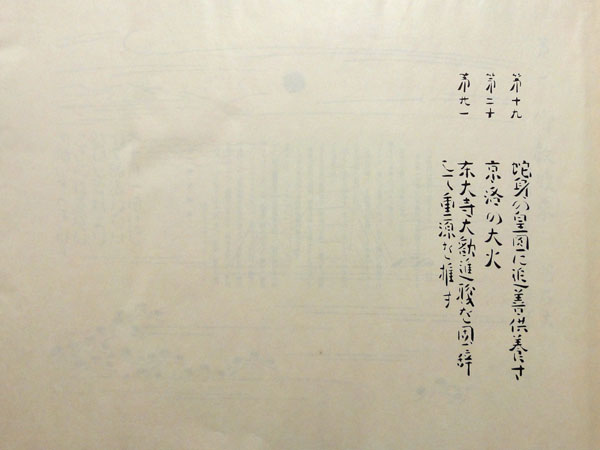 第十九 蛇身の皇圓に追善供養
第二十 京洛の大火
第廿一 東大寺大勧進職を固辞
して重源を推す